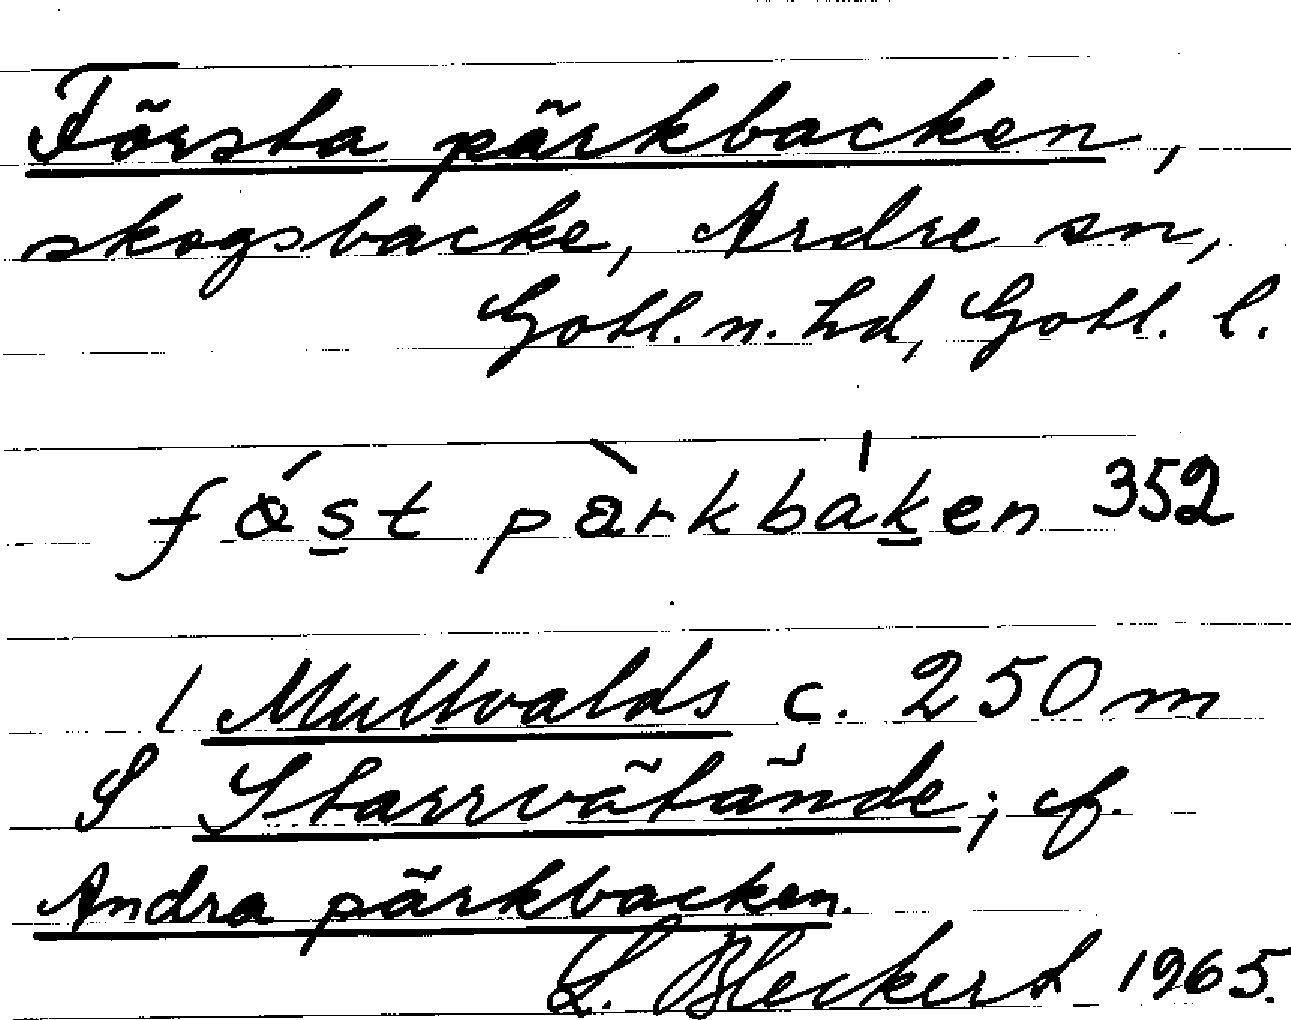 Första pärkbacken,
skogsbacke, Ardre sn,
Gotl. n. hd, Gotl. l.
fάs̲t pὰrkbák̲en 352
/ Mullvalds c. 250 m
S Starrvätände; cf.
Andra pärkbacken.
L. Bleckert 1965.